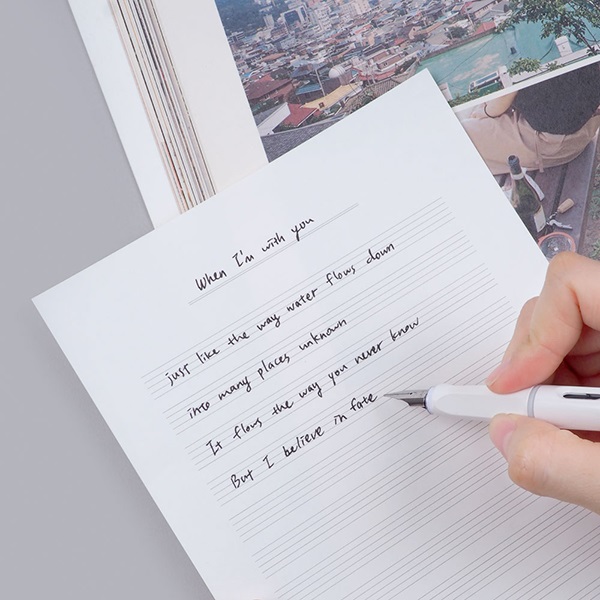 When I'm with you
just like the way water flows down
into many places unknown
It flows the way you never know
But I believe in fate